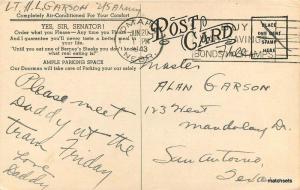 LT. H.L. GARSON U/S Army
Completely Air-Conditioned For Your Comfort
YES, SIR, SENATOR!
Order what you Please—Any time you Please—And
and I guarantee you'll never taste a better meal in
your life.
"Until you eat one of Steaks you don't know
what real eating is."
AMPLE PARKING SPACE
Our Doorman will take care of Parking your car safely
Please meet
Daddy at the
train Friday
Love
Daddy
POST
CARD
OMAHA
JUN 20
43
NEBR
BUY
SAVINGS
BONDS
STAMPS
PLACE
STAMP
HERE
Master
ALAN GARSON
123 West
Mandalay Dr.
San Antonio,
Texas
matchsets